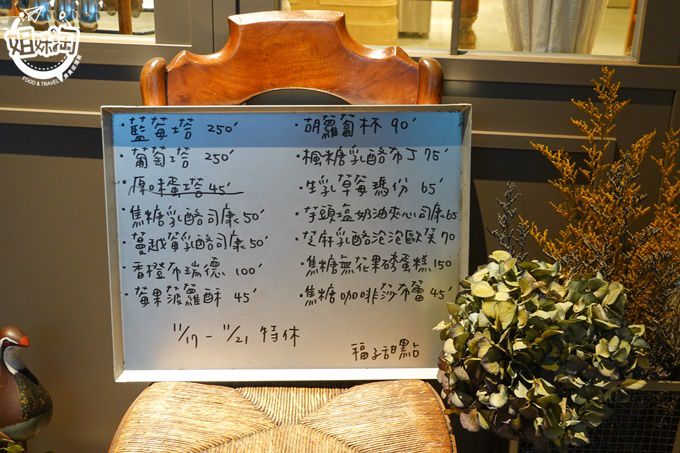 姐妹淘
FOOD & TRAVEL
·藍莓塔 250'
·葡萄塔 250'
·原味蛋塔 45'
·焦糖乳酪司康 50'
·蔓越莓乳酪司康 50'
·香橙布瑞德 100'
·莓果菠蘿酥 45'
·胡蘿蔔杯 90'
·楓糖乳酪布丁 75'
·生乳草莓瑪份 65'
·芋頭塩奶油夾心司康 65
·芝麻乳酪泡泡歐芙 70
·焦糖無花果磅蛋糕 150
·焦糖咖啡莎布蕾 45'
11/17 - 11/21 特休
福子甜點